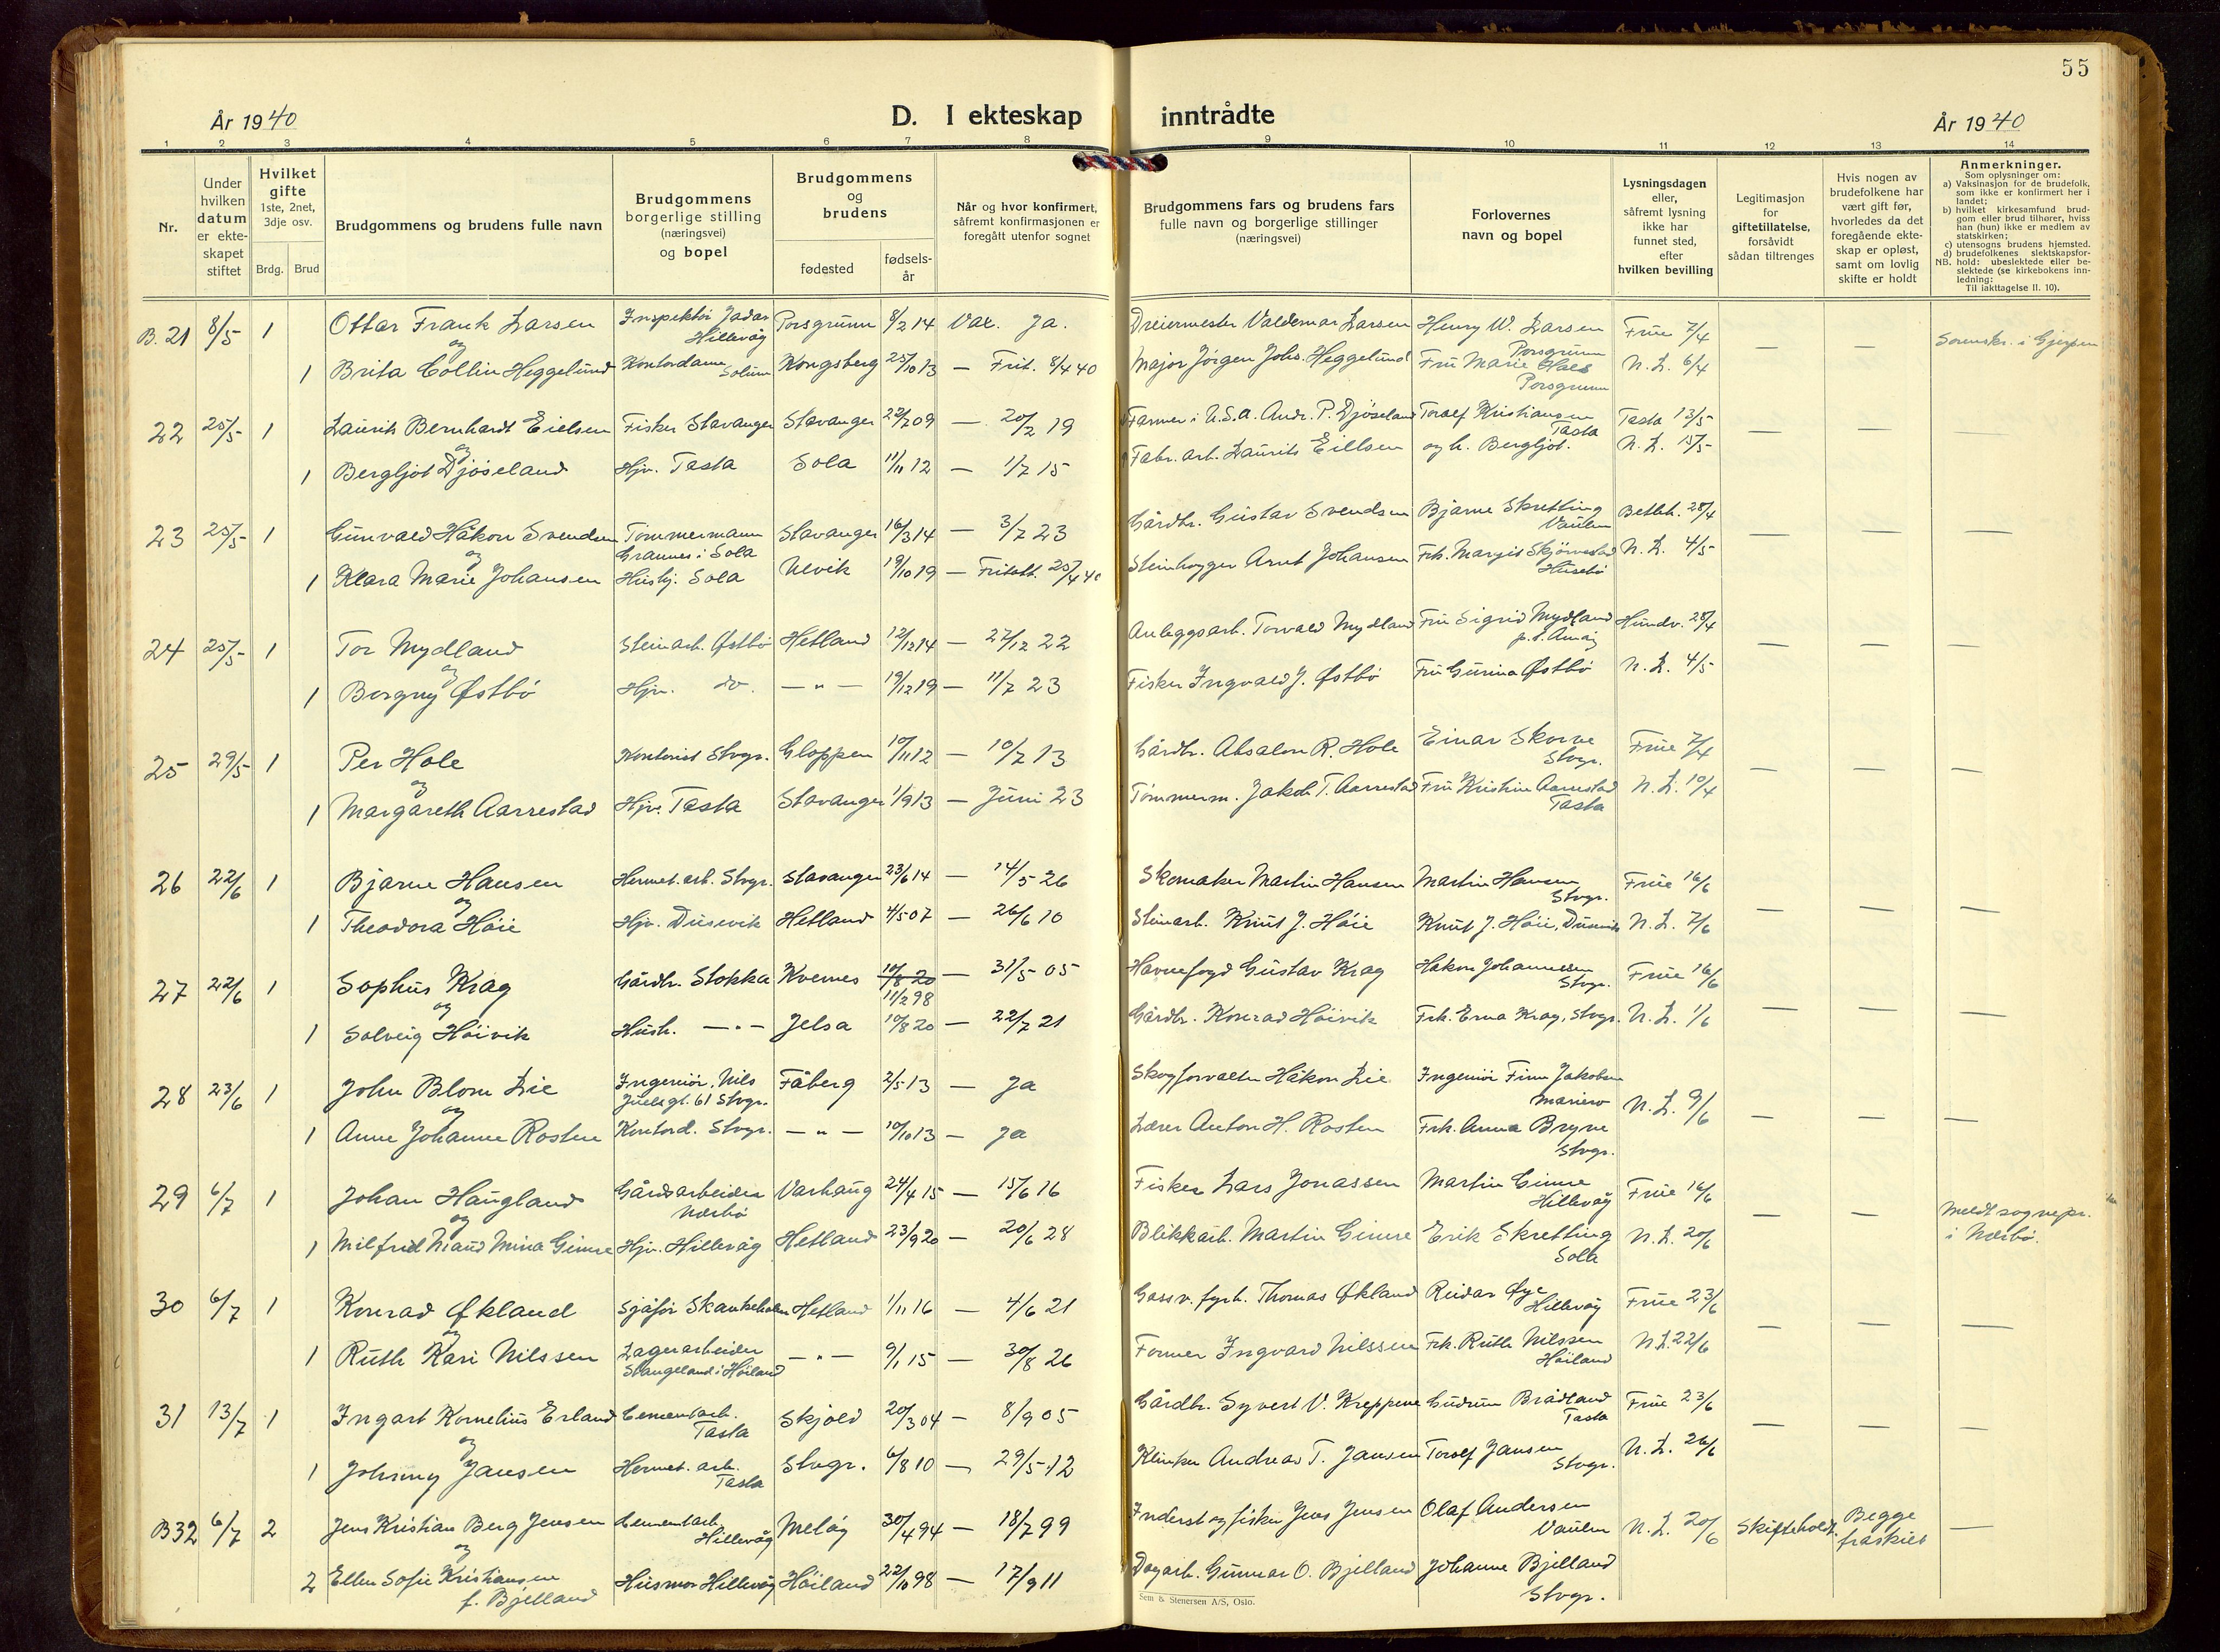 55
År 1940
D. I ekteskap inntrådte
År 1940
1 2 3 4 5 6 7 8 9 10 11 12 13 14
Nr.
Under hvilken datum er ekte-skapet stiftet
Hvilket gifte 1ste, 2net, 3dje osv.
Brdg. Brud
Brudgommens og brudens fulle navn
Brudgommens borgerlige stilling (næringsvei) og bopel
Brudgommens og brudens
fødested
fødsels-år
Når og hvor konfirmert, såfremt konfirmasjonen er foregått utenfor sognet
Brudgommens fars og brudens fars fulle navn og borgerlige stillinger (næringsvei)
Forlovernes navn og bopel
Lysningsdagen eller, såfremt lysning ikke har funnet sted, efter hvilken bevilling
Legitimasjon for giftetillatelse, forsåvidt sådan tiltrenges
Hvis nogen av brudefolkene har vært gift før, hvorledes da det foregående ekte-skap er opløst, samt om lovlig skifte er holdt
Anmerkninger.
Som oplysninger om:
a) Vaksinasjon for de brudefolk, som ikke er konfirmert her i landet;
b) hvilket kirkesamfund brud-gom eller brud tilhører, hviss han (hun) ikke er medlem av statskirken;
c) utensogns brudens hjemsted.
d) brudefolkenes slektskapsfor-hold: ubeslektede eller be-slektede (se kirkebokens inn-ledning;
NB. Til iakttagelse II. 10).
B. 21 8/5 1 Ottar Frank Larsen Inspektør Jadar Hillevåg Porsgrunn 8/2 14 Vax. Ja. Dreiermester Valdemar Larsen Henry W. Larsen Porsgrunn Frue 7/4 — — Sorenskr. i Gjerpen
og
1 Brita Collin Heggelund Kontordame Solum Kongsberg 25/10 13 — Frit. 8/4 40 Major Jörgen Johs. Heggelund Fru Marie Hals Porsgrunn N. L. 6/4
22 25/5 1 Laurits Bernhardt Eielsen Fisker Stavanger Stavanger 22/7 09 — 20/2 19 Farmer i U.S.A. Andr. P. Djöseland Torolf Kristiansen Tasta Tasta 13/5 — — —
og
1 Bergljot Djöseland Hjv. Tasta Sola 11/11 12 — 1/7 15 Fabr. arb. Laurits Eillsen og h. Bergljot. N. L. 15/5
23 25/5 1 Gunvald Håkon Svendsen Tömmermann Grannes i Sola Stavanger 16/3 14 — 3/7 23 Gårdbr. Gustav Svendsen Bjarne Skretting Vaulen Betleh. 28/4 — — —
og
1 Klara Marie Johansen Husbj. Sola Ulvik 19/10 19 — Fritatt. 25/4 40 Steinhogger Arnt Johansen Frk. Margit Skjörvestad Husebö N. L. 4/5
24 25/5 1 Tor Mydland Steinarb. Østbö Hetland 12/12 14 — 27/12 22 Anleggsarb. Torvald Mydland Fru Sigrid Mydland Hundv. 28/4 — — —
og
1 Borgny Østbö Hjv. do. — " — 19/12 19 — 11/7 23 Fisker Ingvald J. Østbö Fru Gurina Østbö N. L. 4/5
25 29/5 1 Per Hole Kontorist Stvgr. Gloppen 10/11 12 — 10/7 13 Gårdbr. Absalon R. Hole Einar Skorve Stvgr. Frue 7/4 — — —
og
1 Margareth Aarrestad Hjv. Tasta Stavanger 1/9 13 — Juni 23 Tömmerm. Jakob T. Aarrestad Fru Kristine Aarrestad Tasta N. L. 10/4
26 22/6 1 Bjarne Hansen Hermet. arb. Stvgr. Stavanger 23/6 14 — 14/5 26 Skomaker Martin Hansen Martin Hansen Stvgr. Frue 16/6 — — —
og
1 Theodora Höie Hjv. Dusevik Hetland 4/5 07 — 26/6 10 Steinarb. Knut J. Höie Knut J. Höie, Dusevik N. L. 7/6
27 22/6 1 Sophus Krag Gårdbr. Stokka Kvernes 10/8 20 11/2 98 — 31/5 05 Havnefogd Gustav Krag Håkon Johannessen Stvgr. Frue 16/6 — — —
og
1 Solveig Höivik Hush. — " — Jelsa 10/8 20 — 22/7 21 Gårdbr. Konrad Höivik Frk. Erna Krag, Stvgr. N. L. 1/6
28 23/6 1 John Blom Lie Ingeniör, Nils Juelsgt. 61 Stvgr. Fåberg 2/5 13 — Ja Skogforvalter Håkon Lie Ingeniör Finn Jakobsen Mariero N. L. 9/6 — — —
og
1 Anne Johanne Rosten Kontord. Stvgr. — " — 10/10 13 — Ja Lærer Anton H. Rosten Frk. Anna Bryne Stvgr.
29 6/7 1 Johan Haugland Gårdsarbeider Nærbö Varhaug 24/4 15 — 15/6 16 Fisker Lars Jonassen Martin Gimre Hillevåg Frue 16/6 — — Meldt sognepr. i Nærbö.
og
1 Milfrid Maud Mina Gimre Hjv. Hillevåg Hetland 23/9 20 — 20/6 28 Blikkarb. Martin Gimre Erik Skretting Sola N. L. 20/6
30 6/7 1 Konrad Økland Sjåför Skankeholen Hetland 1/11 16 — 4/6 21 Gassv. fyrb. Thomas Økland Reidar Øye Hillevåg Frue 23/6 — — —
og
1 Ruth Kari Nilssen Lagerarbeider Stangeland i Höiland — " — 9/1 15 — 30/8 26 Former Ingvard Nilssen Frk. Ruth Nilssen Höiland N. L. 22/6
31 13/7 1 Ingart Kornelius Erland Cementarb. Tasta Skjold 20/3 04 — 8/9 05 Gårdbr. Syvert V. Kreppene Gudrun Brådland Tasta Frue 23/6 — — —
og
1 Johnny Jansen Hermet. arb. Tasta Stvgr. 6/8 10 — 29/5 12 Klinker Andreas T. Jansen Torolf Jansen Stvgr. N. L. 26/6
B32 6/7 2 Jens Kristian Berg Jensen Cementarb. Hillevåg Melöy 30/4 94 — 18/7 99 Inderst og fisker Jens Jensen Olaf Andersen Vaulen N. L. 20/6 Skifteholdt. Begge fraskilt —
og
2 Ellen Sofie Kristiansen f. Bjelland Husmor Hillevåg Höiland 22/10 98 — 17/9 11 Dagarb. Gunnar O. Bjelland Johanne Bjelland Stvgr.
Sem & Stenersen A/S, Oslo.